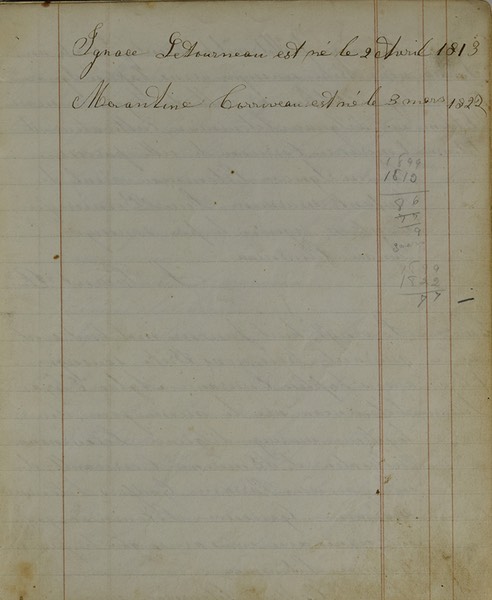 Ignace Letourneau est né le 2 Avril 1813
Merantine Corriveau est né le 3 mars 1822
1899
1813
86
9
1899
1822
77